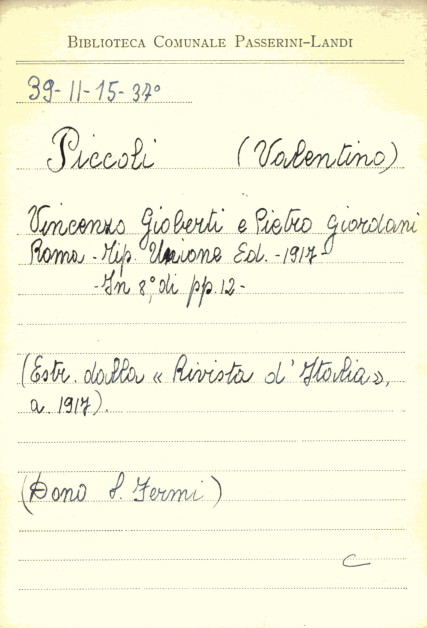 BIBLIOTECA COMUNALE PASSERINI-LANDI
39-II-15-37°
Piccoli (Valentino)
Vincenzo Gioberti e Pietro Giordani
Roma - Tip. Unione Ed. - 1917 -
- In 8°, di pp. 12 -
(Estr. dalla « Rivista d'Italia »,
a. 1917).
(Dono S. Fermi)
C